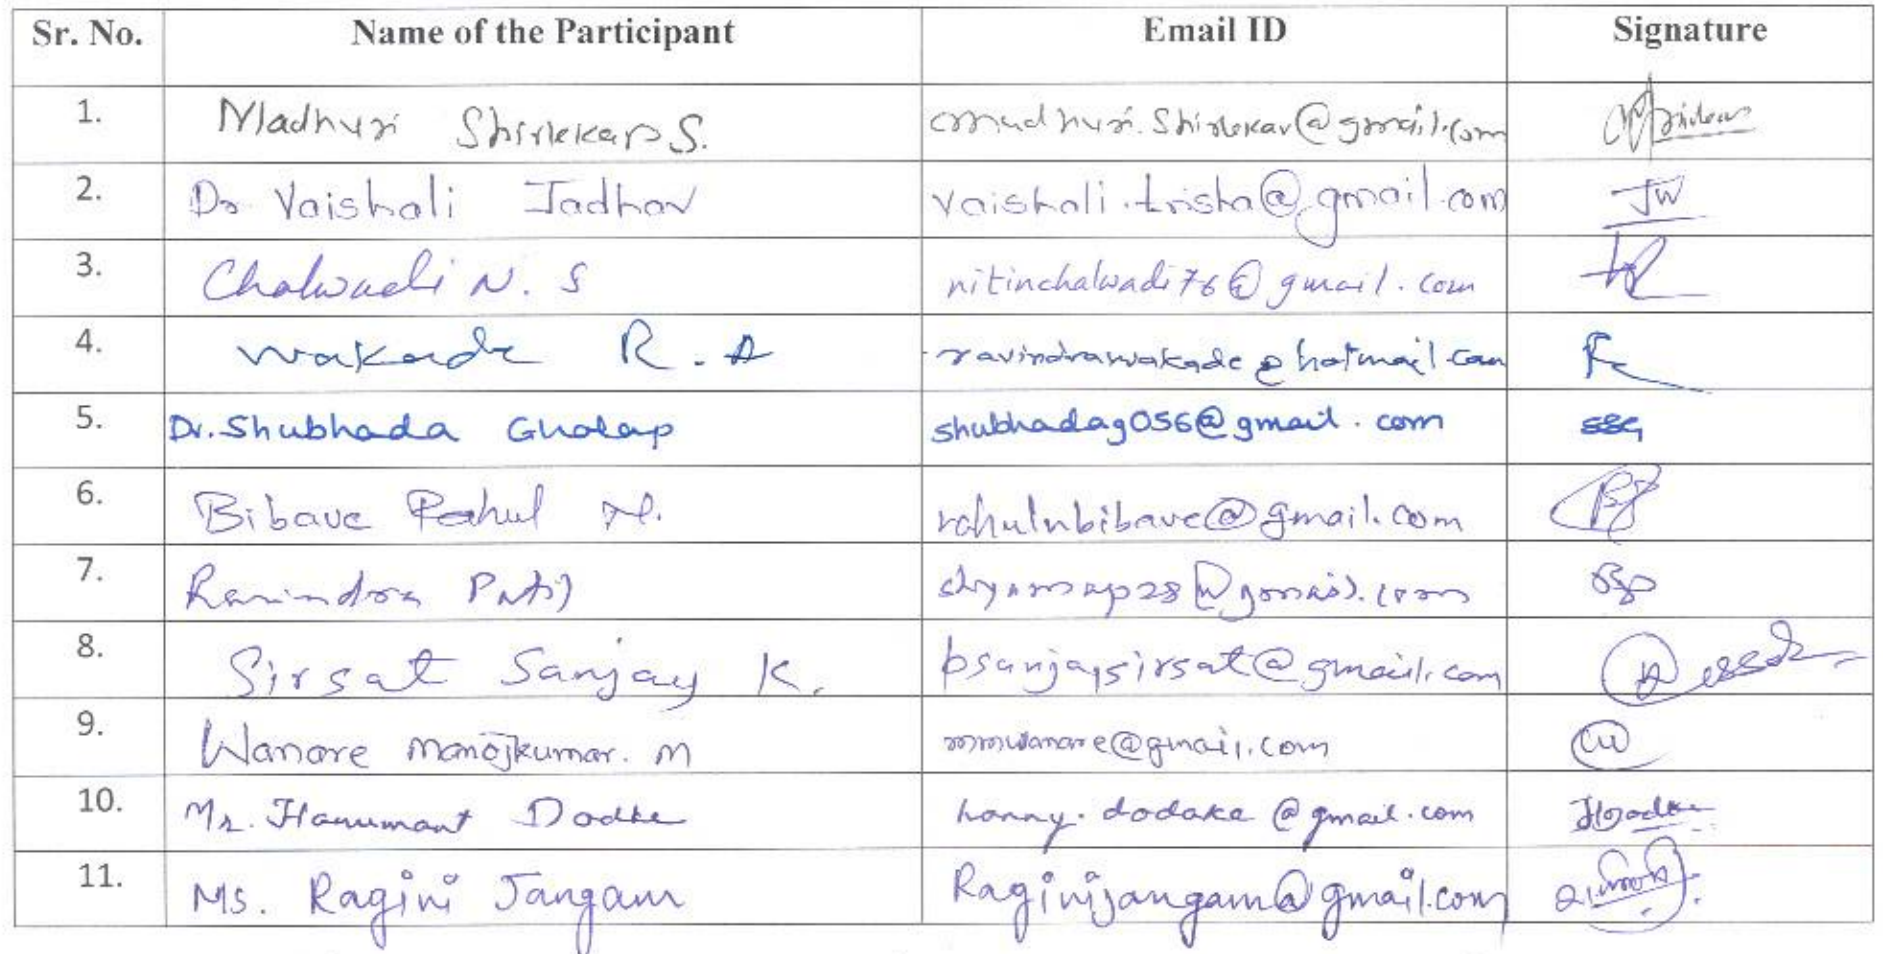 Sr. No. Name of the Participant Email ID Signature
1. Madhuri Shirlekar S. madhuri.Shirlekar@gmail.com
2. Dr. Vaishali Jadhav vaishali.trisha@gmail.com JW
3. Chalwadi N. S nitinchalwadi76@gmail.com
4. Wakade R. A ravindrawakade@hotmail.com
5. Dr. Shubhada Gholap shubhadag056@gmail.com SSG
6. Bibave Rahul N. rahulnbibave@gmail.com
7. Ravindra Patil
8. Sirsat Sanjay K. bsanjaysirsat@gmail.com
9. Wanare Manojkumar. M mmwanare@gmail.com
10. Mr. Hanumant Dodke hanny.dodake@gmail.com HDodke
11. Ms. Ragini Jangam Raginijangam@gmail.com